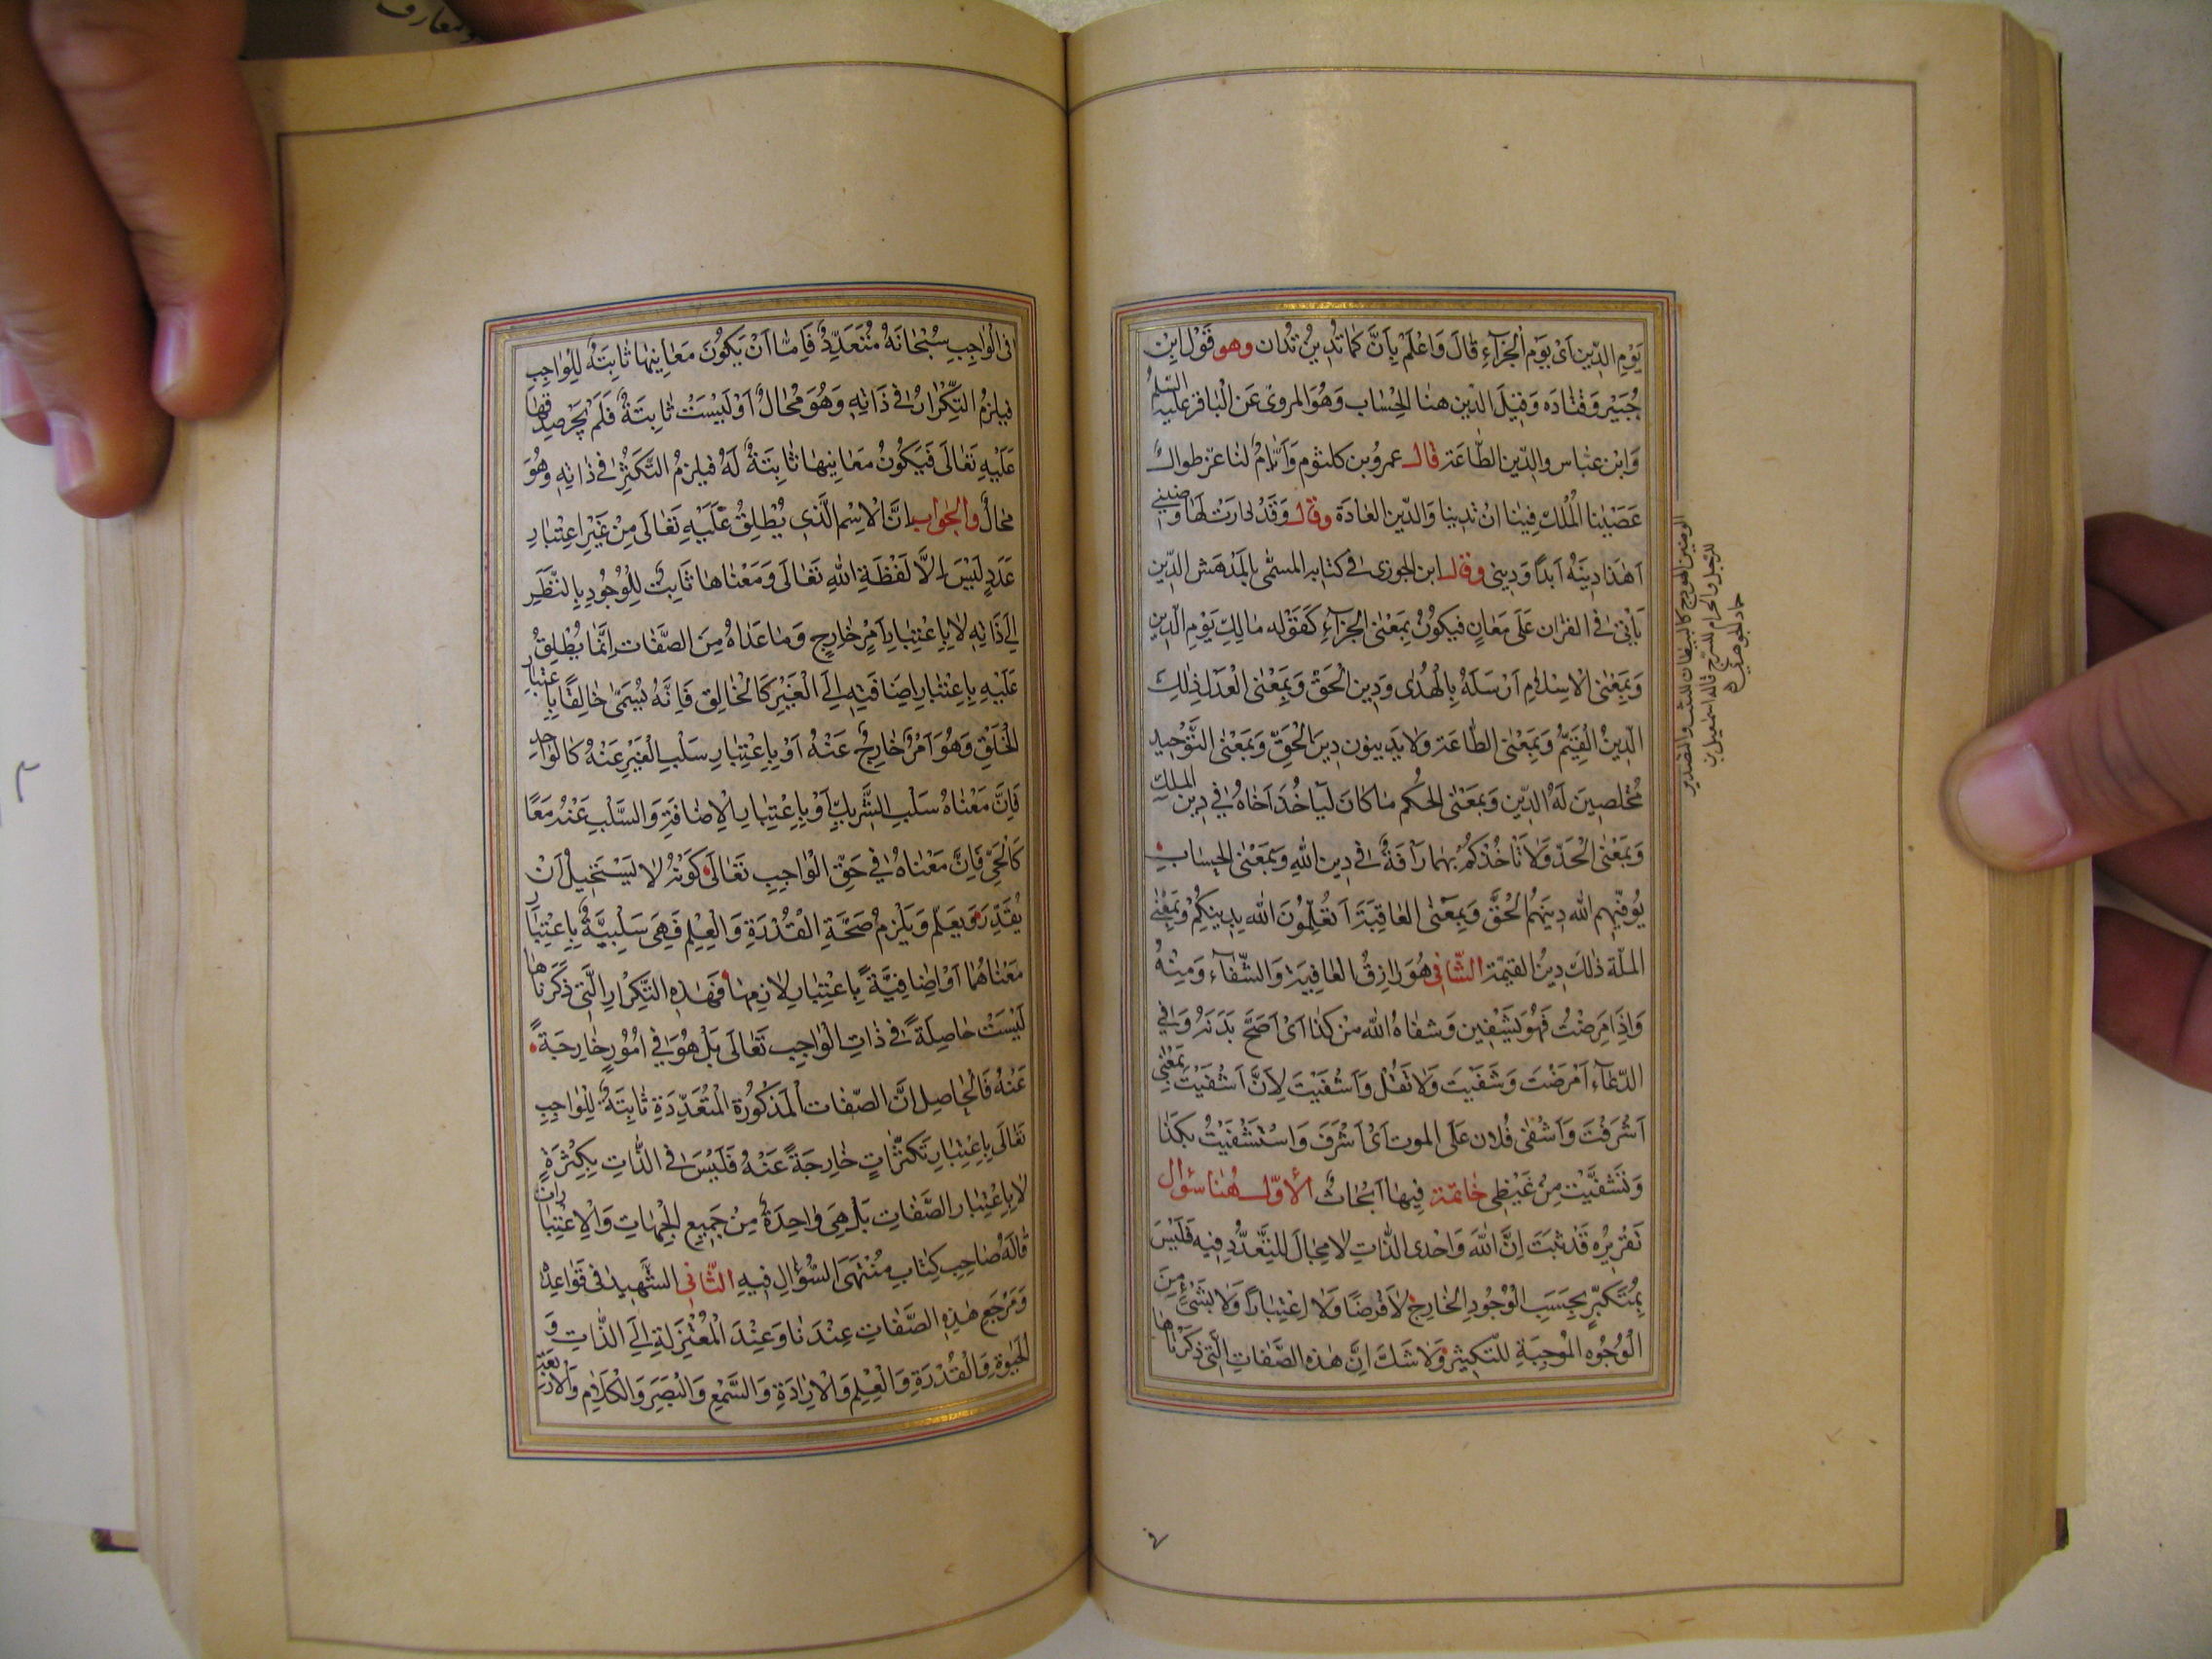 يَوْمِ الدّينِ اَىْ يَوْمِ الْجَزآءِ قالَ وَاعْلَمْ بِاَنَّ كَما تُدينُ تُدان وهو قَوْل ابْنِ
جُبَيْر وَقَتادَه وَقيلَ الدّين هنا الحِساب وَهُوَ المروىّ عَن الْباقر عَلَيْهِ السّلم
وَابْن عبّاس والدّين الطّاعَة قال عمرو بن كلثوم وَاَيّامٌ لنا غرّ طوال
عَصَيْنا الْمُلك فينا ان نَدينا وَالدّين العادَة وقال وَقَدْ لها وضيني
اَهٰذا دينَهُ اَبَداً وَدينى وقال ابن الجوزى فى كتابه المسمّى بالمدهش الدّين
يَأْتى فى القرٰان عَلى مَعانٍ فيكونُ بِمَعْنى الْجَزآءِ كَقَوْله مالِكِ يَوْمِ الدّينِ
وَبِمَعْنى الْاِسْلامِ اَرْسَلَهُ بِالْهُدٰى وَدينِ الْحَقّ وَبِمَعْنى الْعَدْل ذٰلِكَ
الدّينُ الْقَيّمُ وَبِمَعْنى الطّاعَة وَلا يَدينون دينَ الْحَقّ وَبِمَعْنى التّوْحيد
مُخْلِصينَ لَهُ الدّين وَبِمَعْنى الحُكم ما كانَ لِيَأْخُذَ اَخاهُ فى دين الملك
وَبِمَعْنى الْحَدّ وَلا تَأْخُذْكُمْ بِهِما رَأْفَةٌ فى دين اللهِ وَبِمَعْنى الحِساب
يُوَفّيهِم الله دينَهُمُ الْحَقَّ وَبِمَعْنى العاقِبَة اَتُعَلِّمُونَ الله بِدينِكُمْ وَبِمَعْنى
الملّة ذٰلكَ دينُ القَيّمة الشّافى هُوَ رازِقُ العافِيَة وَالشّفآء وَمِنْهُ
وَاِذا مَرِضْتُ فَهُوَ يَشْفين وَشفاهُ الله مِنْ كذا اَىْ اَصَحَّ بَدَنَهُ وَفي
الدّعآء اَمْرَضْتَ وَشَفَيْتَ وَلا تَقُلْ وَاَشْفَيْتَ لِاَنَّ اَشْفَيْت بِمَعْنى
اَشْرَفْتَ وَاَشْفى فُلان عَلَى الموت اَىْ اَشْرَفَ وَاسْتَشْفَيْتُ بِكَذا
وَتَشَفَّيْت مِنْ غَيْظى خاتمة فيها اَبْحاثٌ الأوّل هُنا سؤال
تَقْريرُه قَدْ ثَبَتَ اِنَّ اللهَ وَاحْدى الذّاتِ لا مجالَ لِلتَّعَدُّدِ فيه فَلَيْسَ
بِمُتَكَثِّرٍ بِحَسَبِ الْوُجُودِ الخارِج لا فَرضًا وَلا اِعْتِباراً وَلا بشَىْءٍ مِنَ
الْوُجُوهِ الْمُوجِبَةِ لِلتَّكثير وَلا شَكَّ اِنَّ هٰذه الصّفاتِ الّتى ذكَرْناها
حماد الجوهرى
فى الْواجِبِ سُبْحانَهُ مُتَعَدِّدٌ فَاِمّا اَنْ يَكُونَ مَعانيها ثابِتَةٌ لِلْواجِبِ
فَيَلزمُ التِّكْرار فى ذاتِهِ وَهُوَ مُحالٌ اَوْ لَيْسَتْ ثابِتَةٌ فَلَمْ يَجُز صِدْقها
عَلَيْهِ تَعالى فَيَكُونُ مَعانيها ثابِتَةٌ لَهُ فَيلزمُ التَّكَثُّر فى ذاتِهِ وَهُوَ
مُحالٌ والجواب انَّ الْاِسْم الَّذى يُطْلِقُ عَلَيْهِ تَعٰالى مِنْ غَيْرِ اعْتِبارِ
عَدَدٍ لَيْسَ اِلاَّ لَفْظَةِ اللهِ تَعٰالى وَمَعْناها ثابِتٌ لِلْوُجُودِ بِالنَّظَرِ
اِلى ذاتِهِ لا بِاِعْتِبارِ اَمْرٍ خارِجٍ وَما عَداهُ مِنَ الصِّفاتِ اِنَّما يُطْلِقُ
عَلَيْهِ بِاِعْتِبارِ اِضافَتِهِ اِلَى الْغَيْرِ كَالْخالِقِ فَاِنَّهُ يُسَمّى خالِقًا بِاعْتبارِ
الْخَلْقِ وَهُوَ اَمْرٌ خارِجٌ عَنْهُ اَوْ بِاِعْتِبارِ سَلْبِ الْغَيْرِ عَنْهُ كَالْواحِدِ
فَاِنَّ مَعْناهُ سَلْبِ الشَّريكِ اَوْ بِاِعْتِبارِ الْاِضافَةِ وَالسَّلْبِ عَنْهُ مَعًا
كَالْحَيِّ فَاِنَّ مَعْناهُ في حَقِّ الْواجِبِ تَعالى كَوْنهُ لا يَسْتَحيلُ اَنْ
يُقَدِّرَ وَيَعلم وَيَلْزمُ صَحَّةِ الْقُدْرَةِ وَالْعِلِمِ فَهِىَ سَلْبِيَّةٌ بِاِعْتِبارِ
مَعْناهُما اَوْ اِضافِيَّةً بِاعْتِبارِ لازمها فَهٰذِهِ التَّكْرارِ الَّتى ذَكَرْناها
لَيْسَتْ حاصِلَةً فى ذاتِ الْواجِبِ تَعالى بَلْ هُوَ في اُمُورٍ خارِجَةً
عَنْهُ فَالْحاصِل انَّ الصّفات الْمَذكُورَة الْمُتَعَدِّدَةِ ثابِتَةٌ لِلْواجِبِ
تَعالى بِاِعْتِبارِ تَكَثُّراتٍ خارِجَةً عَنْهُ فَلَيْسَ فى الذّاتِ بِكِثْرَةٍ
لا بِاِعْتِبارِ الصّفاتِ بَلْ هِىَ واحِدَةٌ مِنْ جَميعِ الْجِهاتِ وَالْاِعْتِباراتِ
قالَهُ صاحِب كِتابِ مُنْتَهَى السُّؤالِ فيهِ الثّانى الشَّهيد فى قَواعِدِهِ
وَمَرْجَعِ هٰذِهِ الصّفاتِ عِنْدَنا وَعِنْدَ الْمُعْتَزِلَةِ اِلَى الذّاتِ وَ
الْحَيوةِ وَالْقُدْرَةِ وَالْعِلمِ وَالْاِرادَةِ وَالسَّمْعِ وَالْبَصَرِ وَالْكَلامِ وَالأرْبَعَة